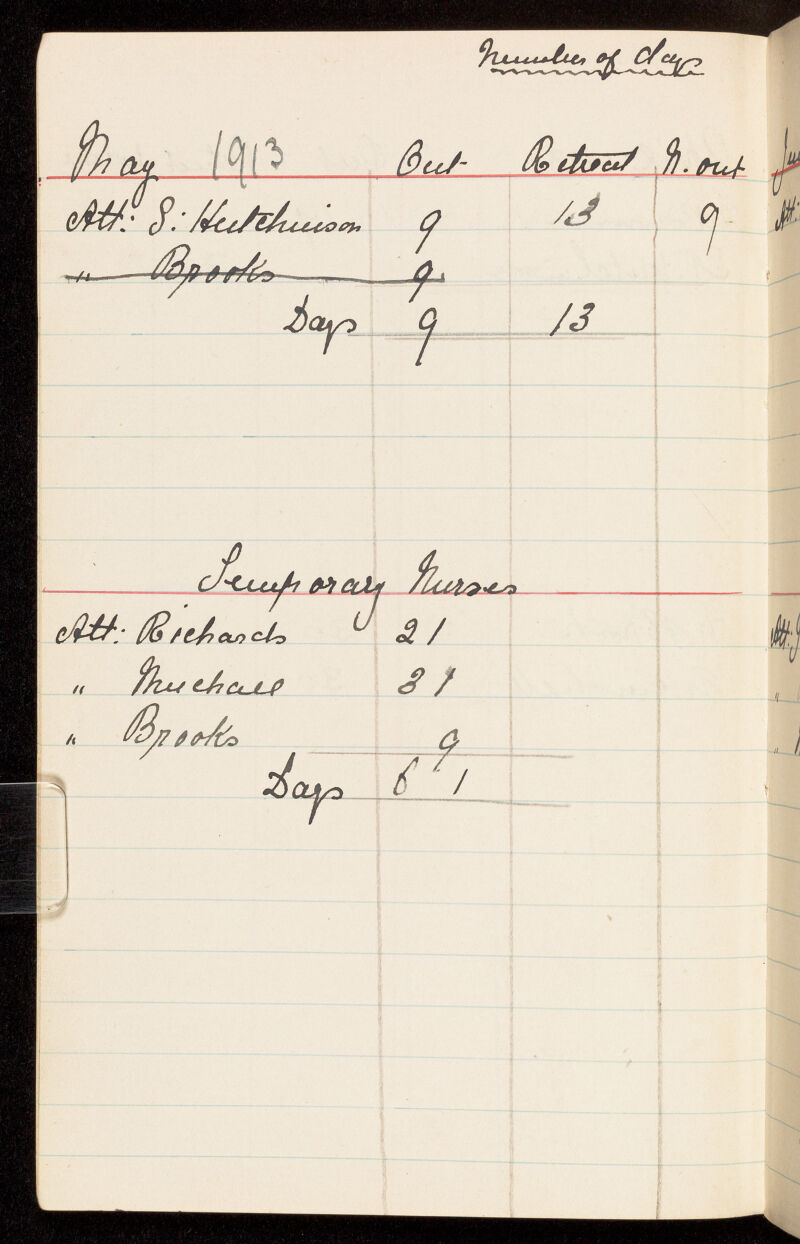 Number of days
May 1913 Out Retreat N. out
Att: S: Hutchinson 9 13 9
" Brooks 9
Days 9 13
Temporary Nurses
Att: Richards 21
" Muchall 31
" Brooks 9
Days 6 1
Att:
Att:
"
"